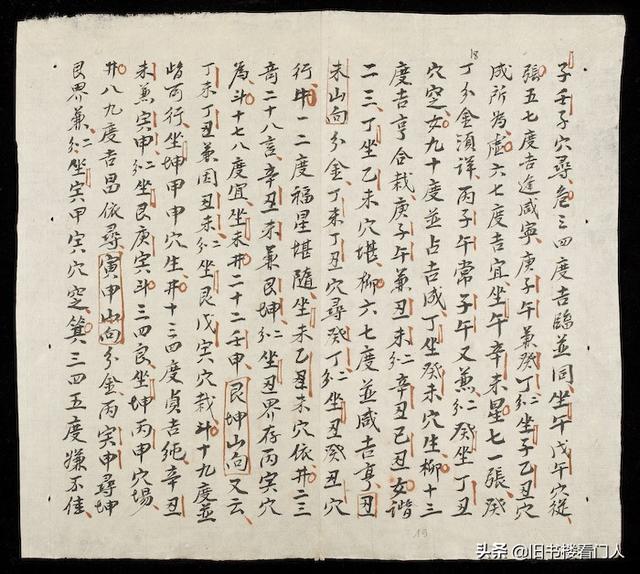 子壬子穴尋危三四度吉臨並同坐午戊午穴從
張五七度吉逢咸寧庚子午兼癸丁仁坐子乙丑穴
成所為虛六七度吉宜坐午辛未星七一張癸
丁分金須詳丙子午常子午又兼仁癸坐丁丑
穴定女九十度並占吉咸丁坐癸未穴生柳十三
度吉亨合栽庚子午兼丑未仁辛丑己丑女諧
二三丁坐乙未穴堪柳六七度並咸吉亨丑
未山向分金丁未丁丑穴尋癸丁仁坐丑癸丑穴
行牛一二度福星堪隨坐未乙丑未穴依井二三
奇二十八言辛丑未兼艮坤仁坐丑界存丙寅穴
為斗十七八度宜坐未井二十二壬申艮坤山向又云
丁未丁丑兼因丑未仁坐艮戊寅穴栽斗十九度並
皆可行坐坤甲申穴生井十三四度貞吉純辛丑
未兼寅申仁坐艮庚寅斗三四良坐坤丙申穴場
井八九度吉昌依尋寅申山向分金丙寅申尋坤
艮界兼仁坐寅甲寅穴定箕三四五度嫌不佳
18
19
头条@旧书楼看门人